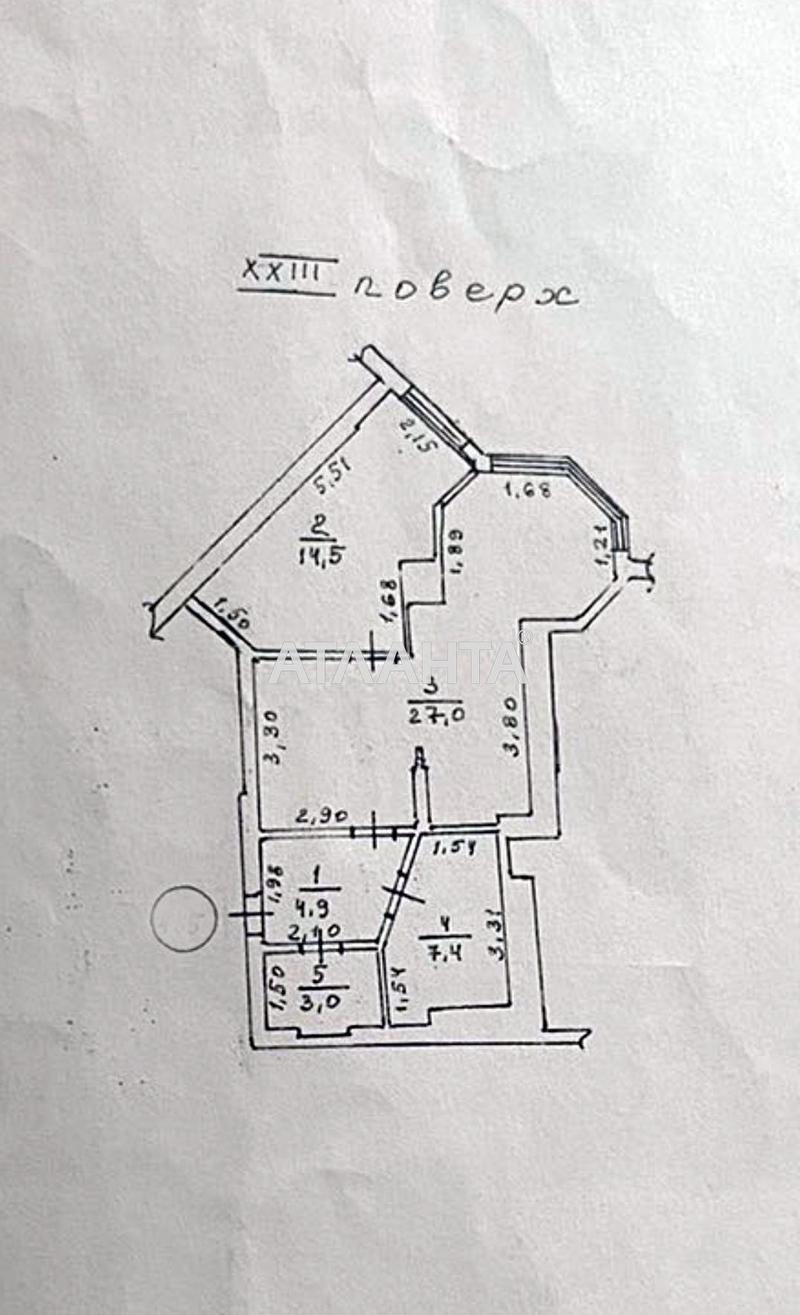 XXIII поверх
2,15
5,51
1,68
2
14,5
1,89
1,21
1,50
1,68
АТЛАНТА
3
27,0
3,30
3,80
2,90
1,54
1,98
1
4,9
4
7,4
3,31
2,10
1,50
5
3,0
1,54